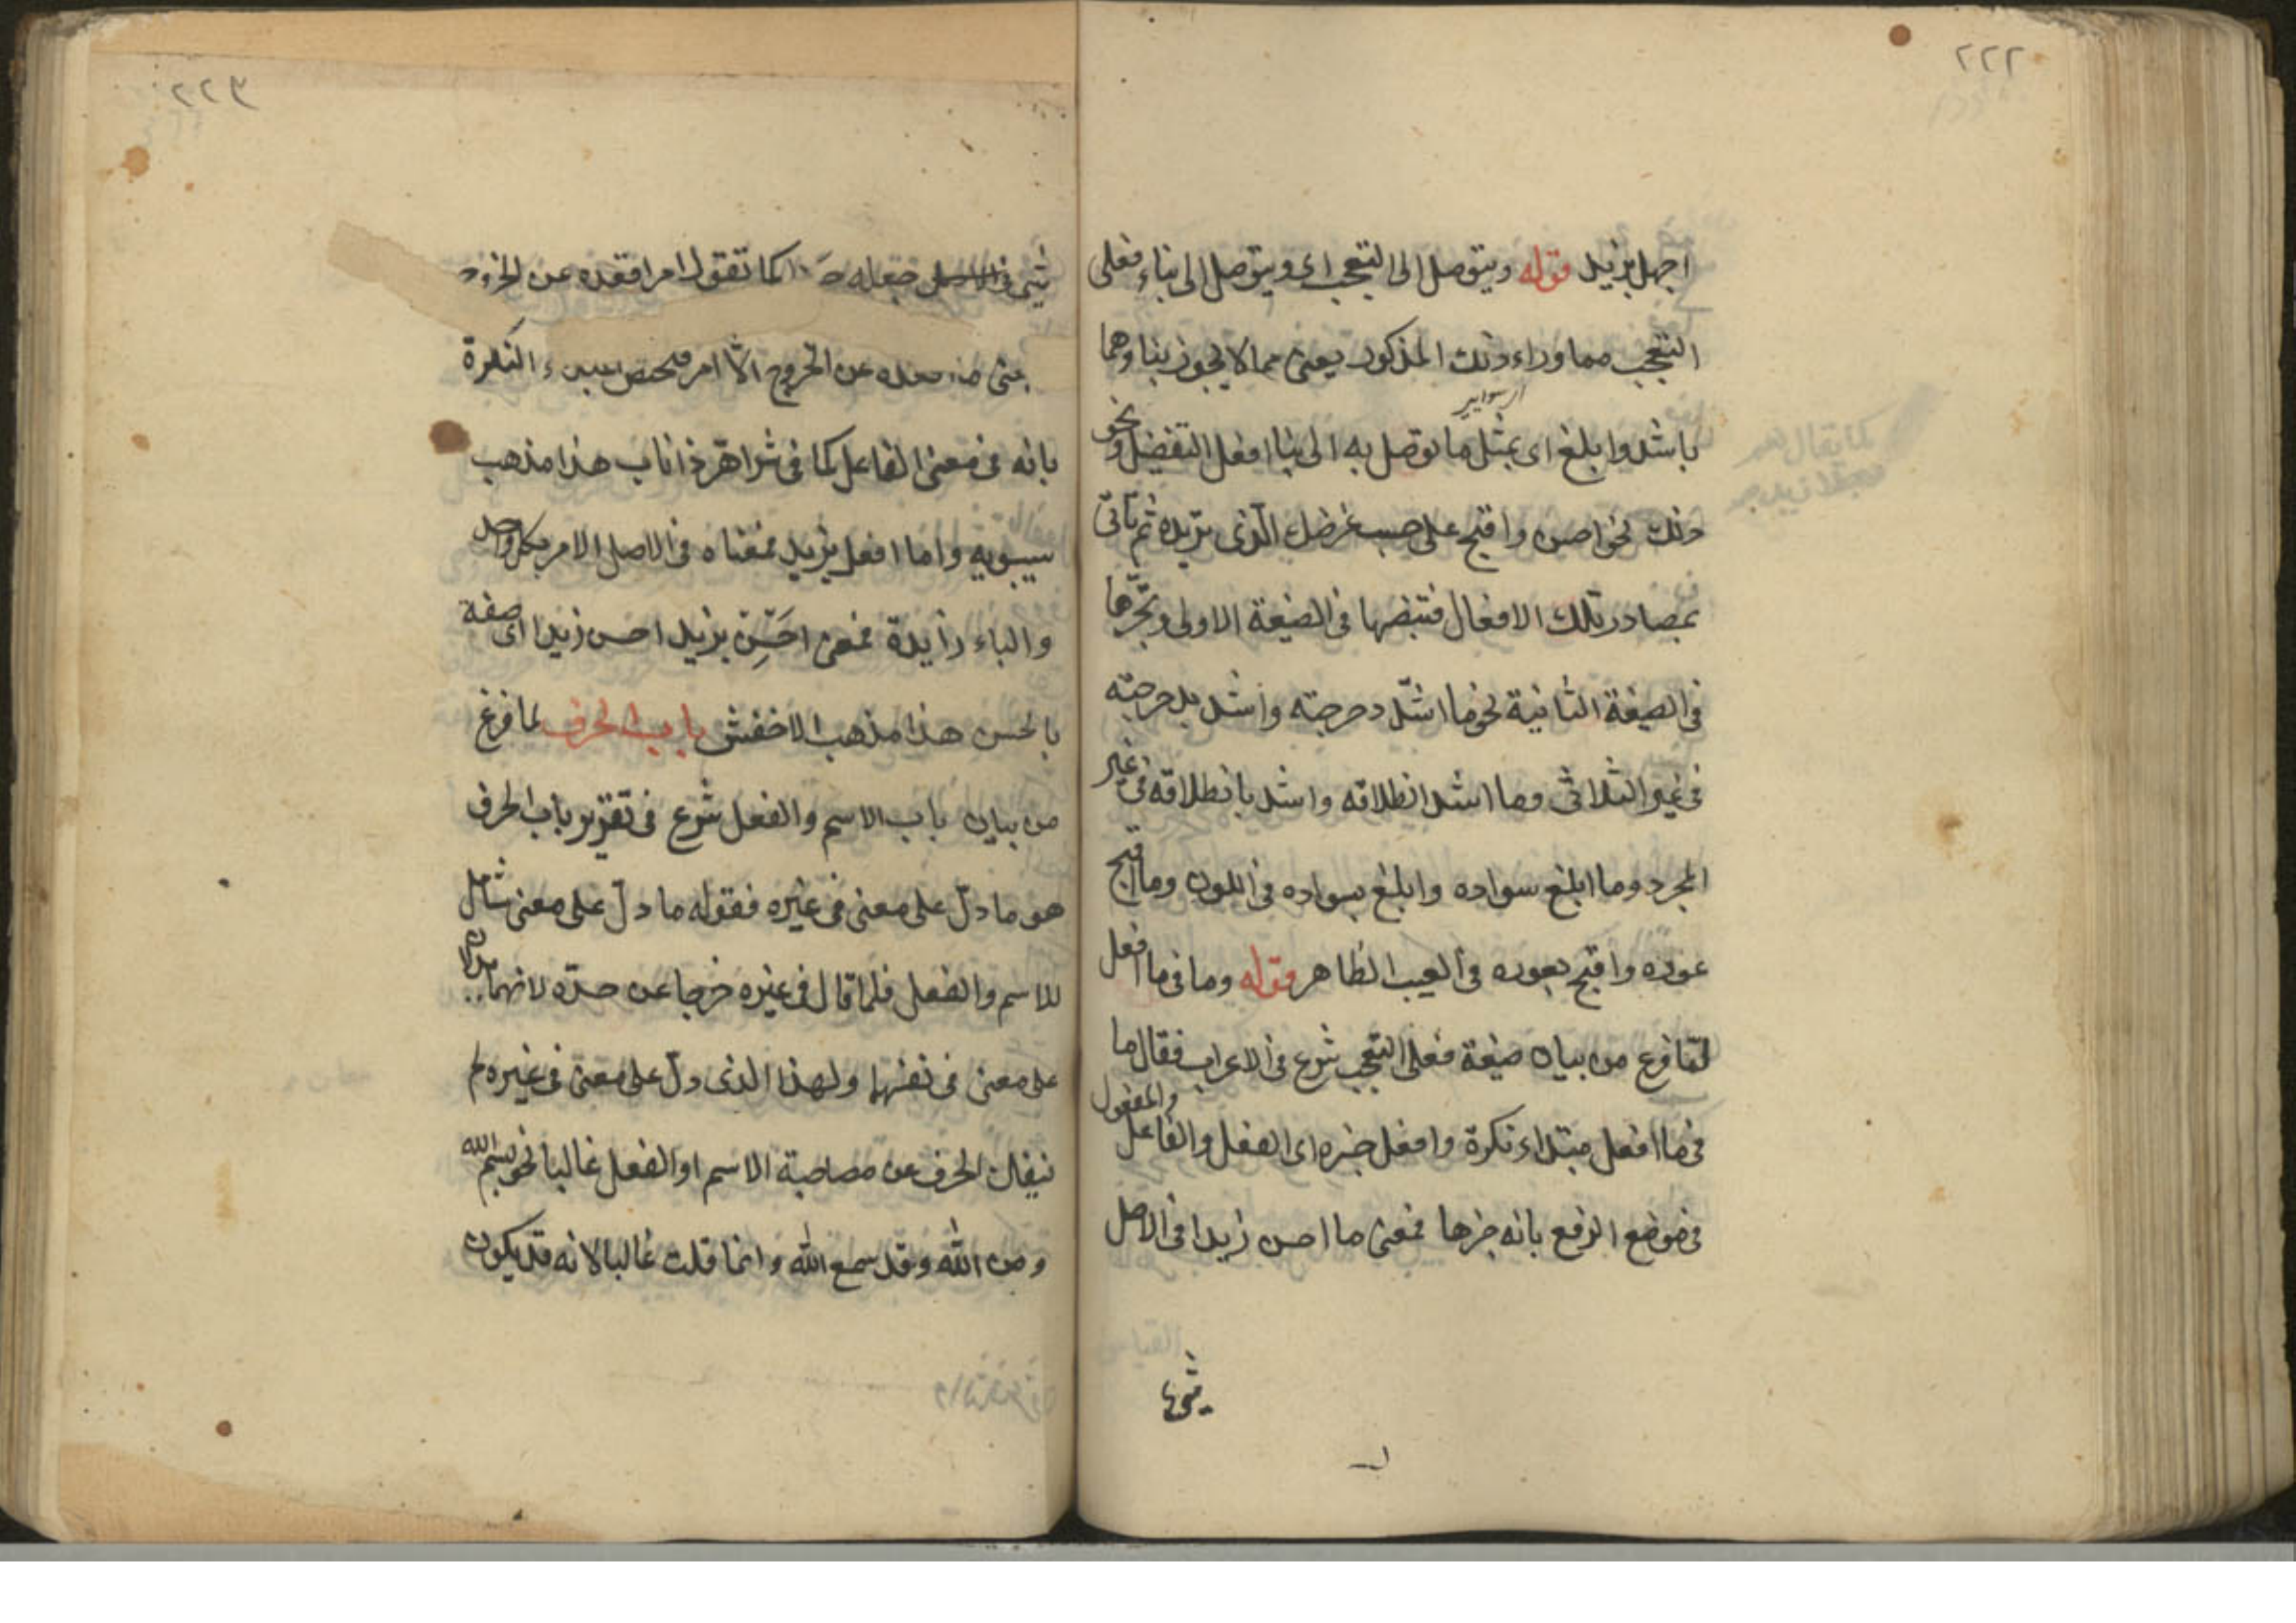 ٢٢٢
اجهل بزيد قوله ويتوصل الى التعجب اى ويتوصل الى بناء فعلى
التعجب مما وراء ذلك المذكور يعنى مما لا يجوز بناوهما
باشد وابلغ اى بمثل ما يوصل به الى بناا افعل التفضيل ونحو
ذلك نحو احسن واقبح على حسب غرضك الذى تريده ثم تأتى
بمصادر تلك الافعال فتنصبها فى الصيغة الاولى وتجرّها
فى الصيغة الثانية نحو ما اشدّ دحرجته واشدد بدحرجته
فى غير الثلاثى وما اشد انطلاقه واشدد بانطلاقه فى غير
المجرد وما ابلغ سواده وابلغ بسواده فى اللون وما اقبح
عوره واقبح بعوره فى العيب الظاهر قوله وما فى ما افعل
لمّا فرغ من بيان صيغة فعلى التعجب شرع فى الاعراب فقال ما
والمفعول
فى ما افعل مبتداء نكرة وافعل خبره اى الفعل والفاعل
فى موضع الرفع بانه خبرها فمعنى ما احسن زيدا فى الاصل
٢٢٣
شئ فى الاصل جعله كما تقول امر اقعده عن الخروج
عن الخروج الّا امر النكرة
بانه فى معنى الفاعل كما فى شر اهرّ ذا ناب هذا مذهب
سيبويه واما افعل بزيد فمعناه فى الاصل الامر بكل واحد
والباء زايدة فمعنى احسِن بزيد احسن زيدا اى صفه
بالحسن هذا مذهب الاخفش باب الحرف لما فرغ
من بيان باب الاسم والفعل شرع فى تقرير باب الحرف
هو ما دلّ على معنى فى غيره فقوله ما دلّ على معنى شامل
للاسم والفعل فلما قال فى غيره خرجا عن حدّه لانهما
على معنى فى نفسهما ولهذا الذى دلّ على معنى فى غيره لم
ينفك الحرف عن مصاحبة الاسم او الفعل غالبا نحو بسم الله
ومن الله وقد سمع الله وانما قلت غالبا لانه قد يكون